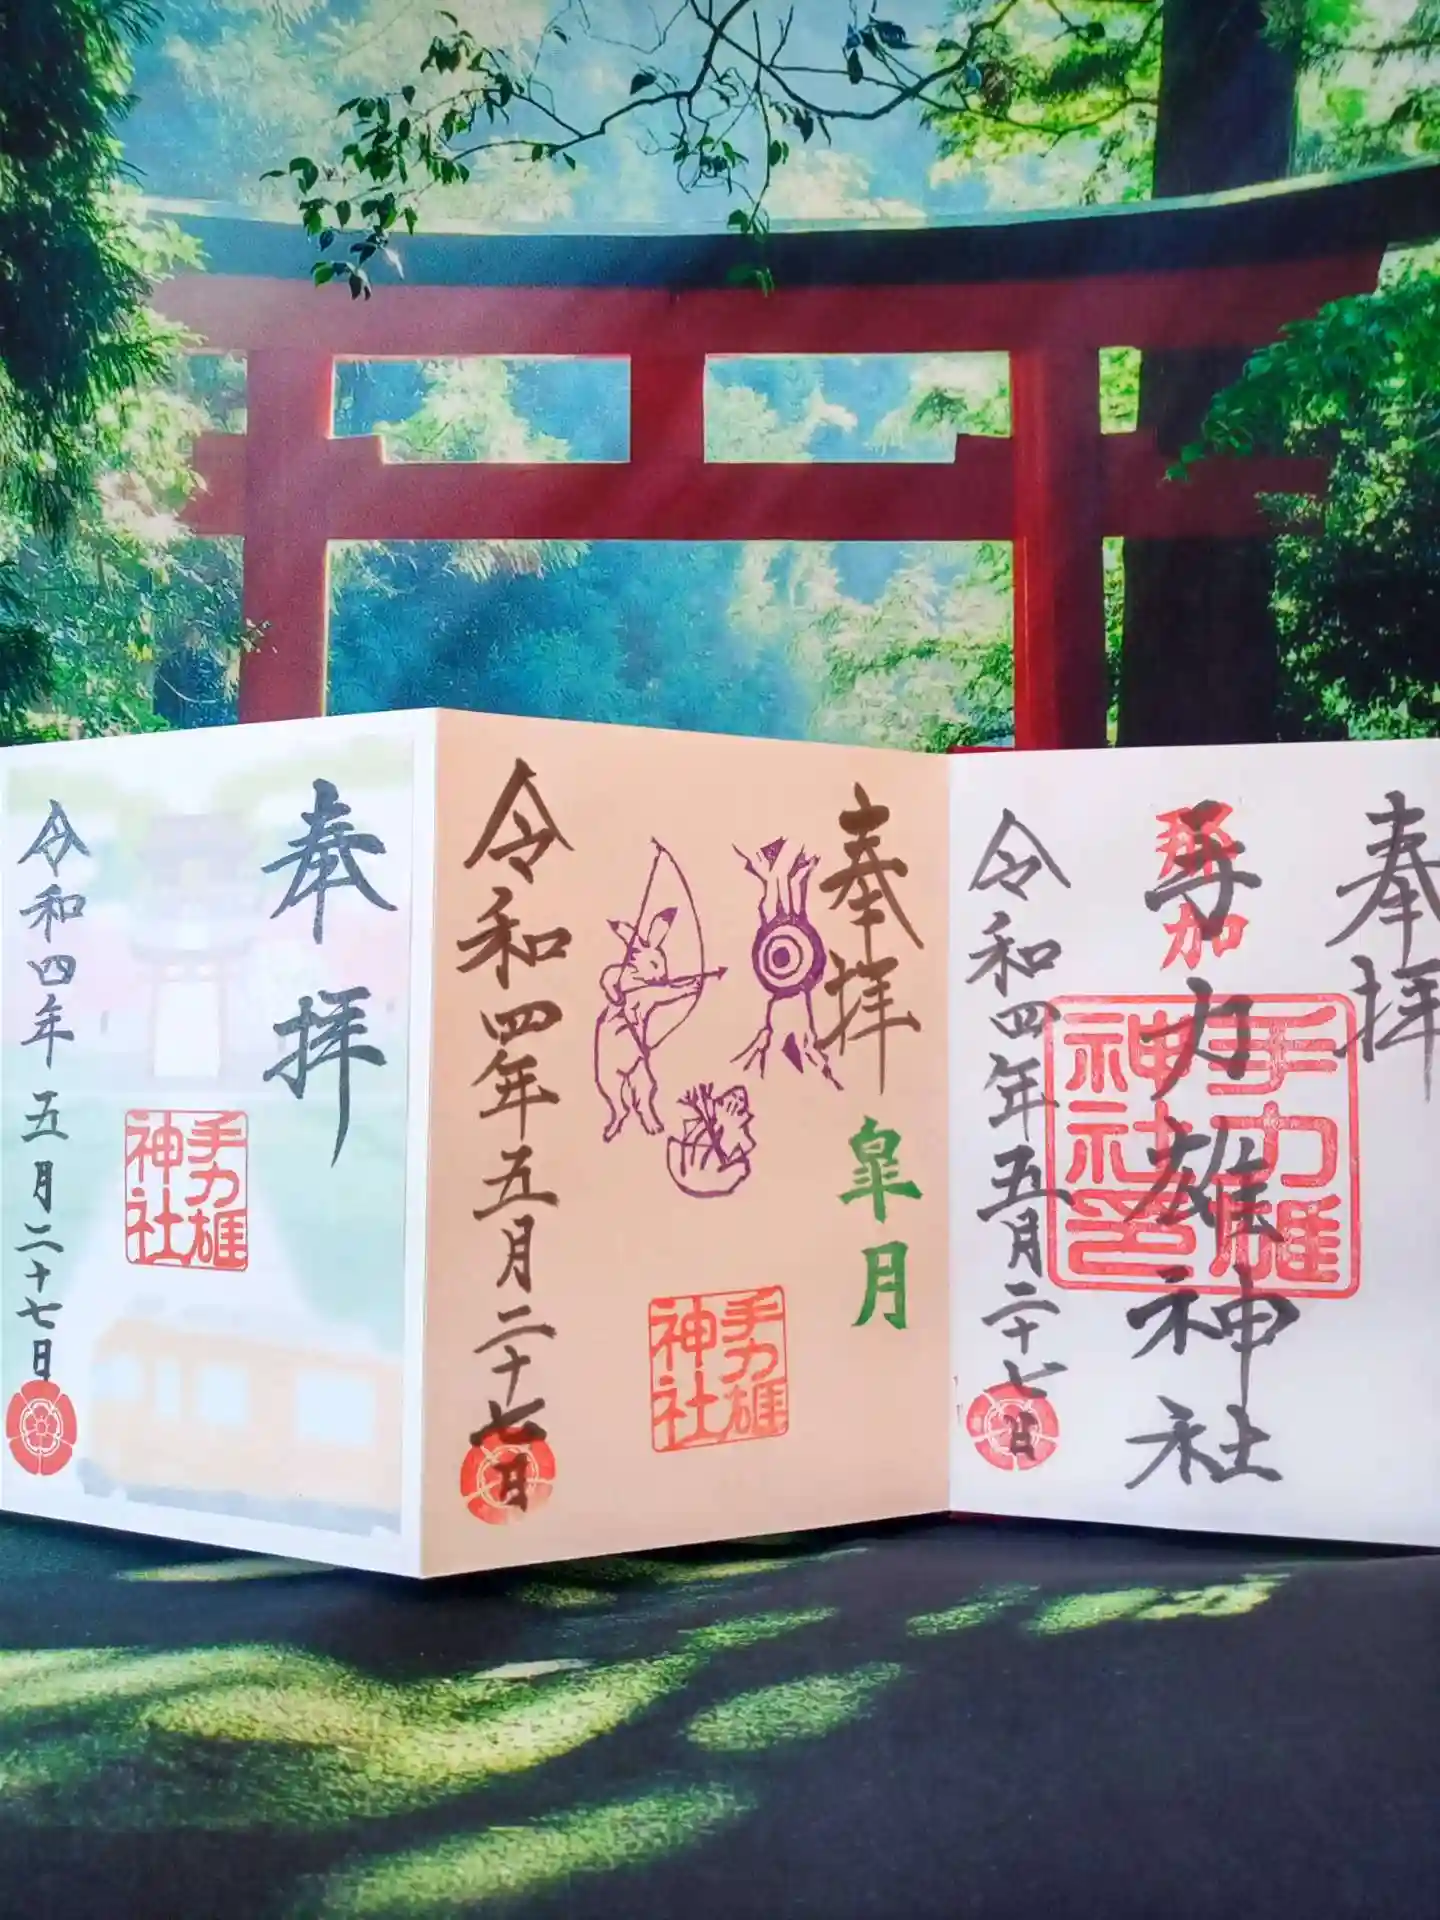 奉拝
那加
手力雄神社
手力雄神社印
令和四年五月二十七日
奉拝
皐月
手力雄神社
令和四年五月二十七日
奉拝
手力雄神社
令和四年五月二十七日